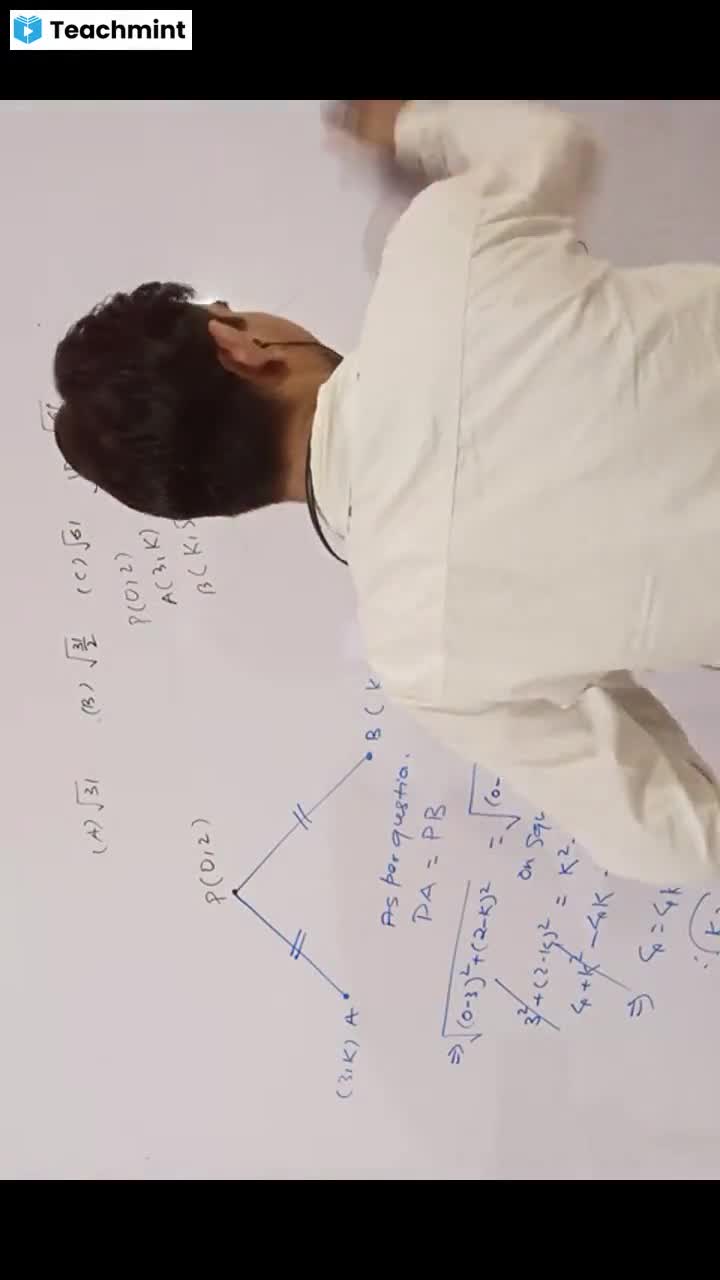 Teachmint
(A) √31 (B) √31/2 (C) √61
P(0,2)
A(3,K)
B(K,5
P(0,2)
(3,K) A
B (K
As per questio.
PA = PB
⇒ √(0-3)²+(2-K)² = √(0-
on squ
3²+(2-K)² = K²
4+K²-4K
⇒ 4=4K
∴ (K